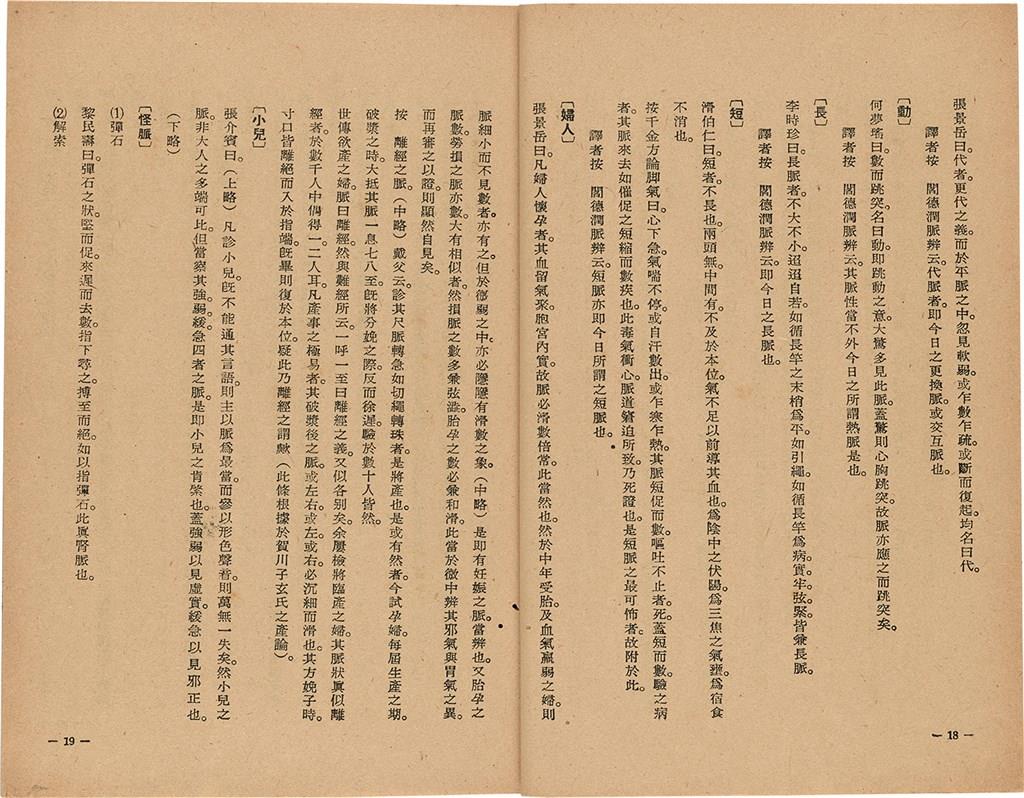 張景岳曰。代者。更代之義。而於平脈之中。忽見軟弱。或乍數乍疏。或斷而復起。均名曰代。
譯者按　閻德潤脈辨云。代脈者。即今日之更換脈。或交互脈也。
〔動〕
何夢瑤曰。數而跳突。名曰動。即跳動之意。大驚多見此脈。蓋驚則心胸跳突。故脈亦應之而跳突矣。
譯者按　閻德潤脈辨云。其脈性當不外今日之所謂熱脈是也。
〔長〕
李時珍曰。長脈者。不大不小。迢迢自若。如循長竿之末梢。爲平。如引繩。如循長竿。爲病。實牢弦緊。皆兼長脈。
譯者按　閻德潤脈辨云。即今日之長脈也。
〔短〕
滑伯仁曰。短者。不長也。兩頭無。中間有。不及於本位。氣不足以前導其血也。爲陰中之伏陽。爲三焦之氣壅。爲宿食
不消也。
按千金方論脚氣曰。心下急。氣喘不停。或自汗數出。或乍寒乍熱。其脈短促而數。嘔吐不止者。死。蓋短而數。驗之病
者。其脈來去如催促之短縮而數疾也。此毒氣衝心。脈道窘迫所致。乃死證也。是短脈之最可怖者。故附於此。
譯者按　閻德潤脈辨云。短脈亦即今日所謂之短脈也。
〔婦人〕
張景岳曰。凡婦人懷孕者。其血留氣聚。胞宮內實。故脈必滑數倍常。此當然也。然於中年受胎。及血氣羸弱之婦。則
— 18 —
脈細小而不見數者。亦有之。但於微弱之中。亦必隱隱有滑數之象。（中略）是即有妊娠之脈。當辨也。又胎孕之
脈數。勞損之脈亦數。大有相似者。然損脈之數。多兼弦澁。胎孕之數。必兼和滑。此當於微中辨其邪氣與胃氣之異。
而再審之以證。則顯然自見矣。
按　離經之脈。（中略）戴父云。診其尺脈轉急。如切繩轉珠者。是將產也。是或有然者。今試孕婦每屆生產之期。
破漿之時。大抵其脈一息七八至。旣將分娩之際。反而徐遲。驗於數十人皆然。
世傳欲產之婦脈曰離經。然與難經所云。一呼一至曰離經之義。又似各別矣。余屢檢將臨產之婦。其脈狀眞似離
經者。於數千人中。偶得一二人耳。凡產事之極易者。其破漿後之脈。或左右。或左。或右。必沉細而滑也。其方娩子時。
寸口皆離絕而入於指端。旣畢則復於本位。疑此乃離經之謂歟（此條根據於賀川子玄氏之產論）。
〔小兒〕
張介賓曰。（上略）凡診小兒。旣不能通其言語。則主以脈爲最當。而參以形色聲音。則萬無一失矣。然小兒之
脈。非大人之多端可比。但當察其強弱緩急四者之脈。是即小兒之肯綮也。蓋強弱以見虛實。緩急以見邪正也。
（下略）
〔怪脈〕
⑴彈石
黎民壽曰。彈石之狀。堅而促。來遲而去數。指下尋之。搏至而絕。如以指彈石。此眞腎脈也。
⑵解索
— 19 —